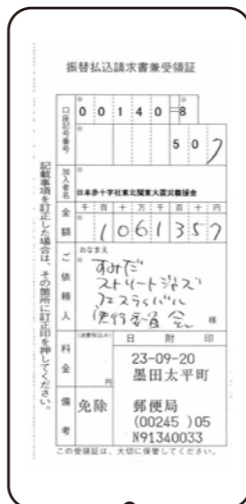 振替払込請求書兼受領証
口座記号番号
00140 8
507
加入者名
日本赤十字社東北関東大震災義援金
金額
千百十万千百十円
1061357
ご依頼人
おなまえ
すみだ
ストリートジャズ
フェスティバル
実行委員会
様
料金
(消費税込み)
円
日附印
23-09-20
墨田太平町
郵便局
(00245 )05
N91340033
備考
免除
この受領証は、大切に保管してください。
記載事項を訂正した場合は、その箇所に訂正印を押してください。